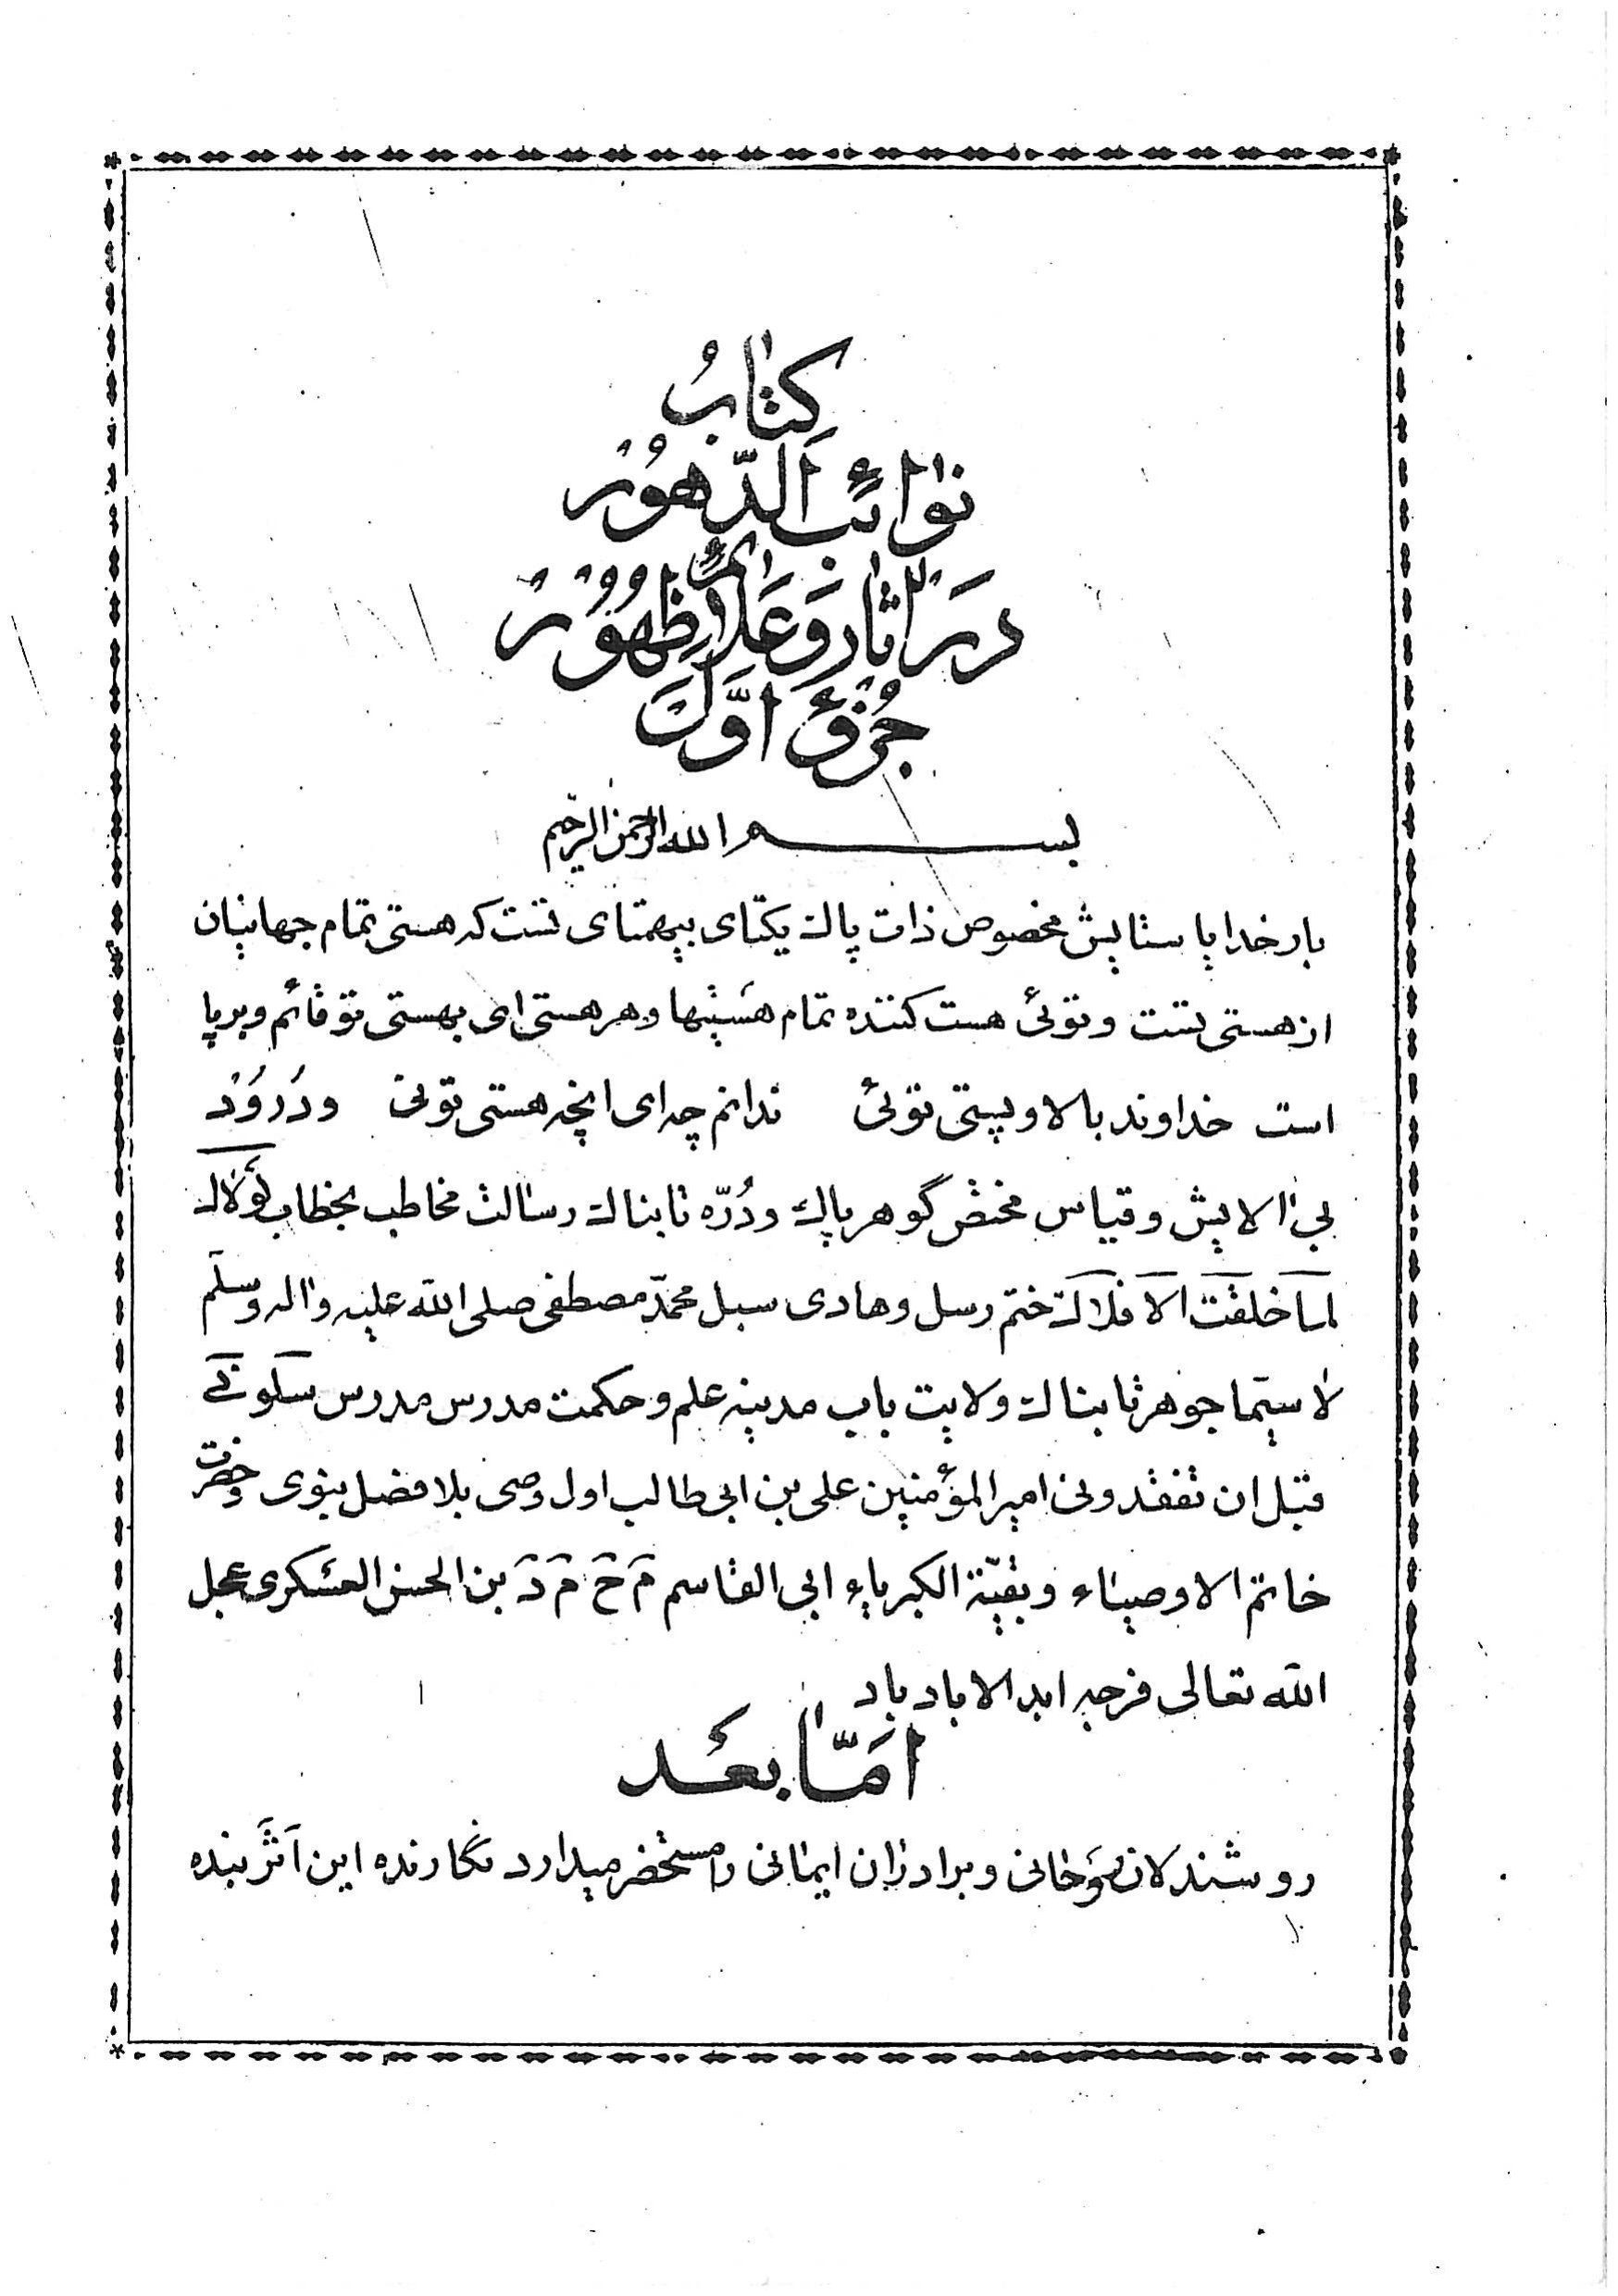 کتابُ
نوائب الدّهُور
در آثار و علائم ظهُور
جُزؤ اوّل
بسم الله الرحمن الرّحیم
بار خدایا ستایش مخصوص ذات پاک یکتای بیهمتای تست که هستی تمام جهانیان
از هستی تست و توئی هست کننده تمام هستیها و هر هستی ای بهستی تو قائم و برپا
است خداوند بالا و پستی توئی ندانم چه ای انچه هستی توئی و دُرُوْد
بی الایش و قیاس مختص گوهر پاک و دُرّه تابناک رسالت مخاطب بخطاب لَوْلاک
لما خلقت الافلاک ختم رسل و هادی سبل محمّد مصطفی صلی الله علیه و اله و سلّم
لا سیّما جوهر تابناک ولایت باب مدینه علم و حکمت مدرس مدرس سلونی
قبل ان تفقدونی امیر المؤمنین علی بن ابی طالب اول وصی بلا فصل نبوی و حضرت
خاتم الاوصیاء و بقیّة الکبریاء ابی القاسم مَ حَ مَ دَ بن الحسن العسکری عجل
الله تعالی فرجه ابد الاباد باد
امّا بعد
روشندلان روحانی و برادران ایمانی را مستحضر میدارد نگارنده این اثر بنده